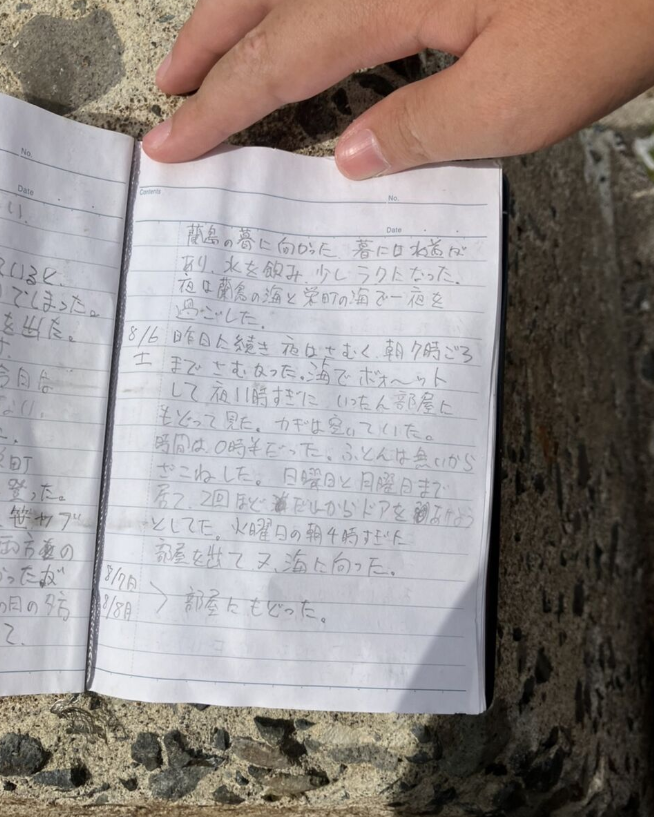 No.
Date
い.
いると、
でしまった。
を出た。
今日は
町
登った。
笹ヤブ
両方風の
ったが
の目の夕方
て.
Contents
No.
Date
蘭島の墓に向かった 墓には水道が
あり、水を飲み、少しラクになった。
夜は蘭島の海と栄町の海で一夜を
過ごした。
8/6 昨日に続き 夜はさむく、朝7時ごろ
土 までさむかった。海でボォ〜ット
して 夜11時すぎに いったん部屋に
もどって見た。カギは空いていた。
時間は、0時半だった。ふとんは無いから
ざこねした。日曜日と月曜日まで
居て、2回ほどだれかがドアをあけよう
としてた。火曜日の朝4時すぎに
部屋を出て又、海に向った。
8/7日
8/8月 〉 部屋にもどった。